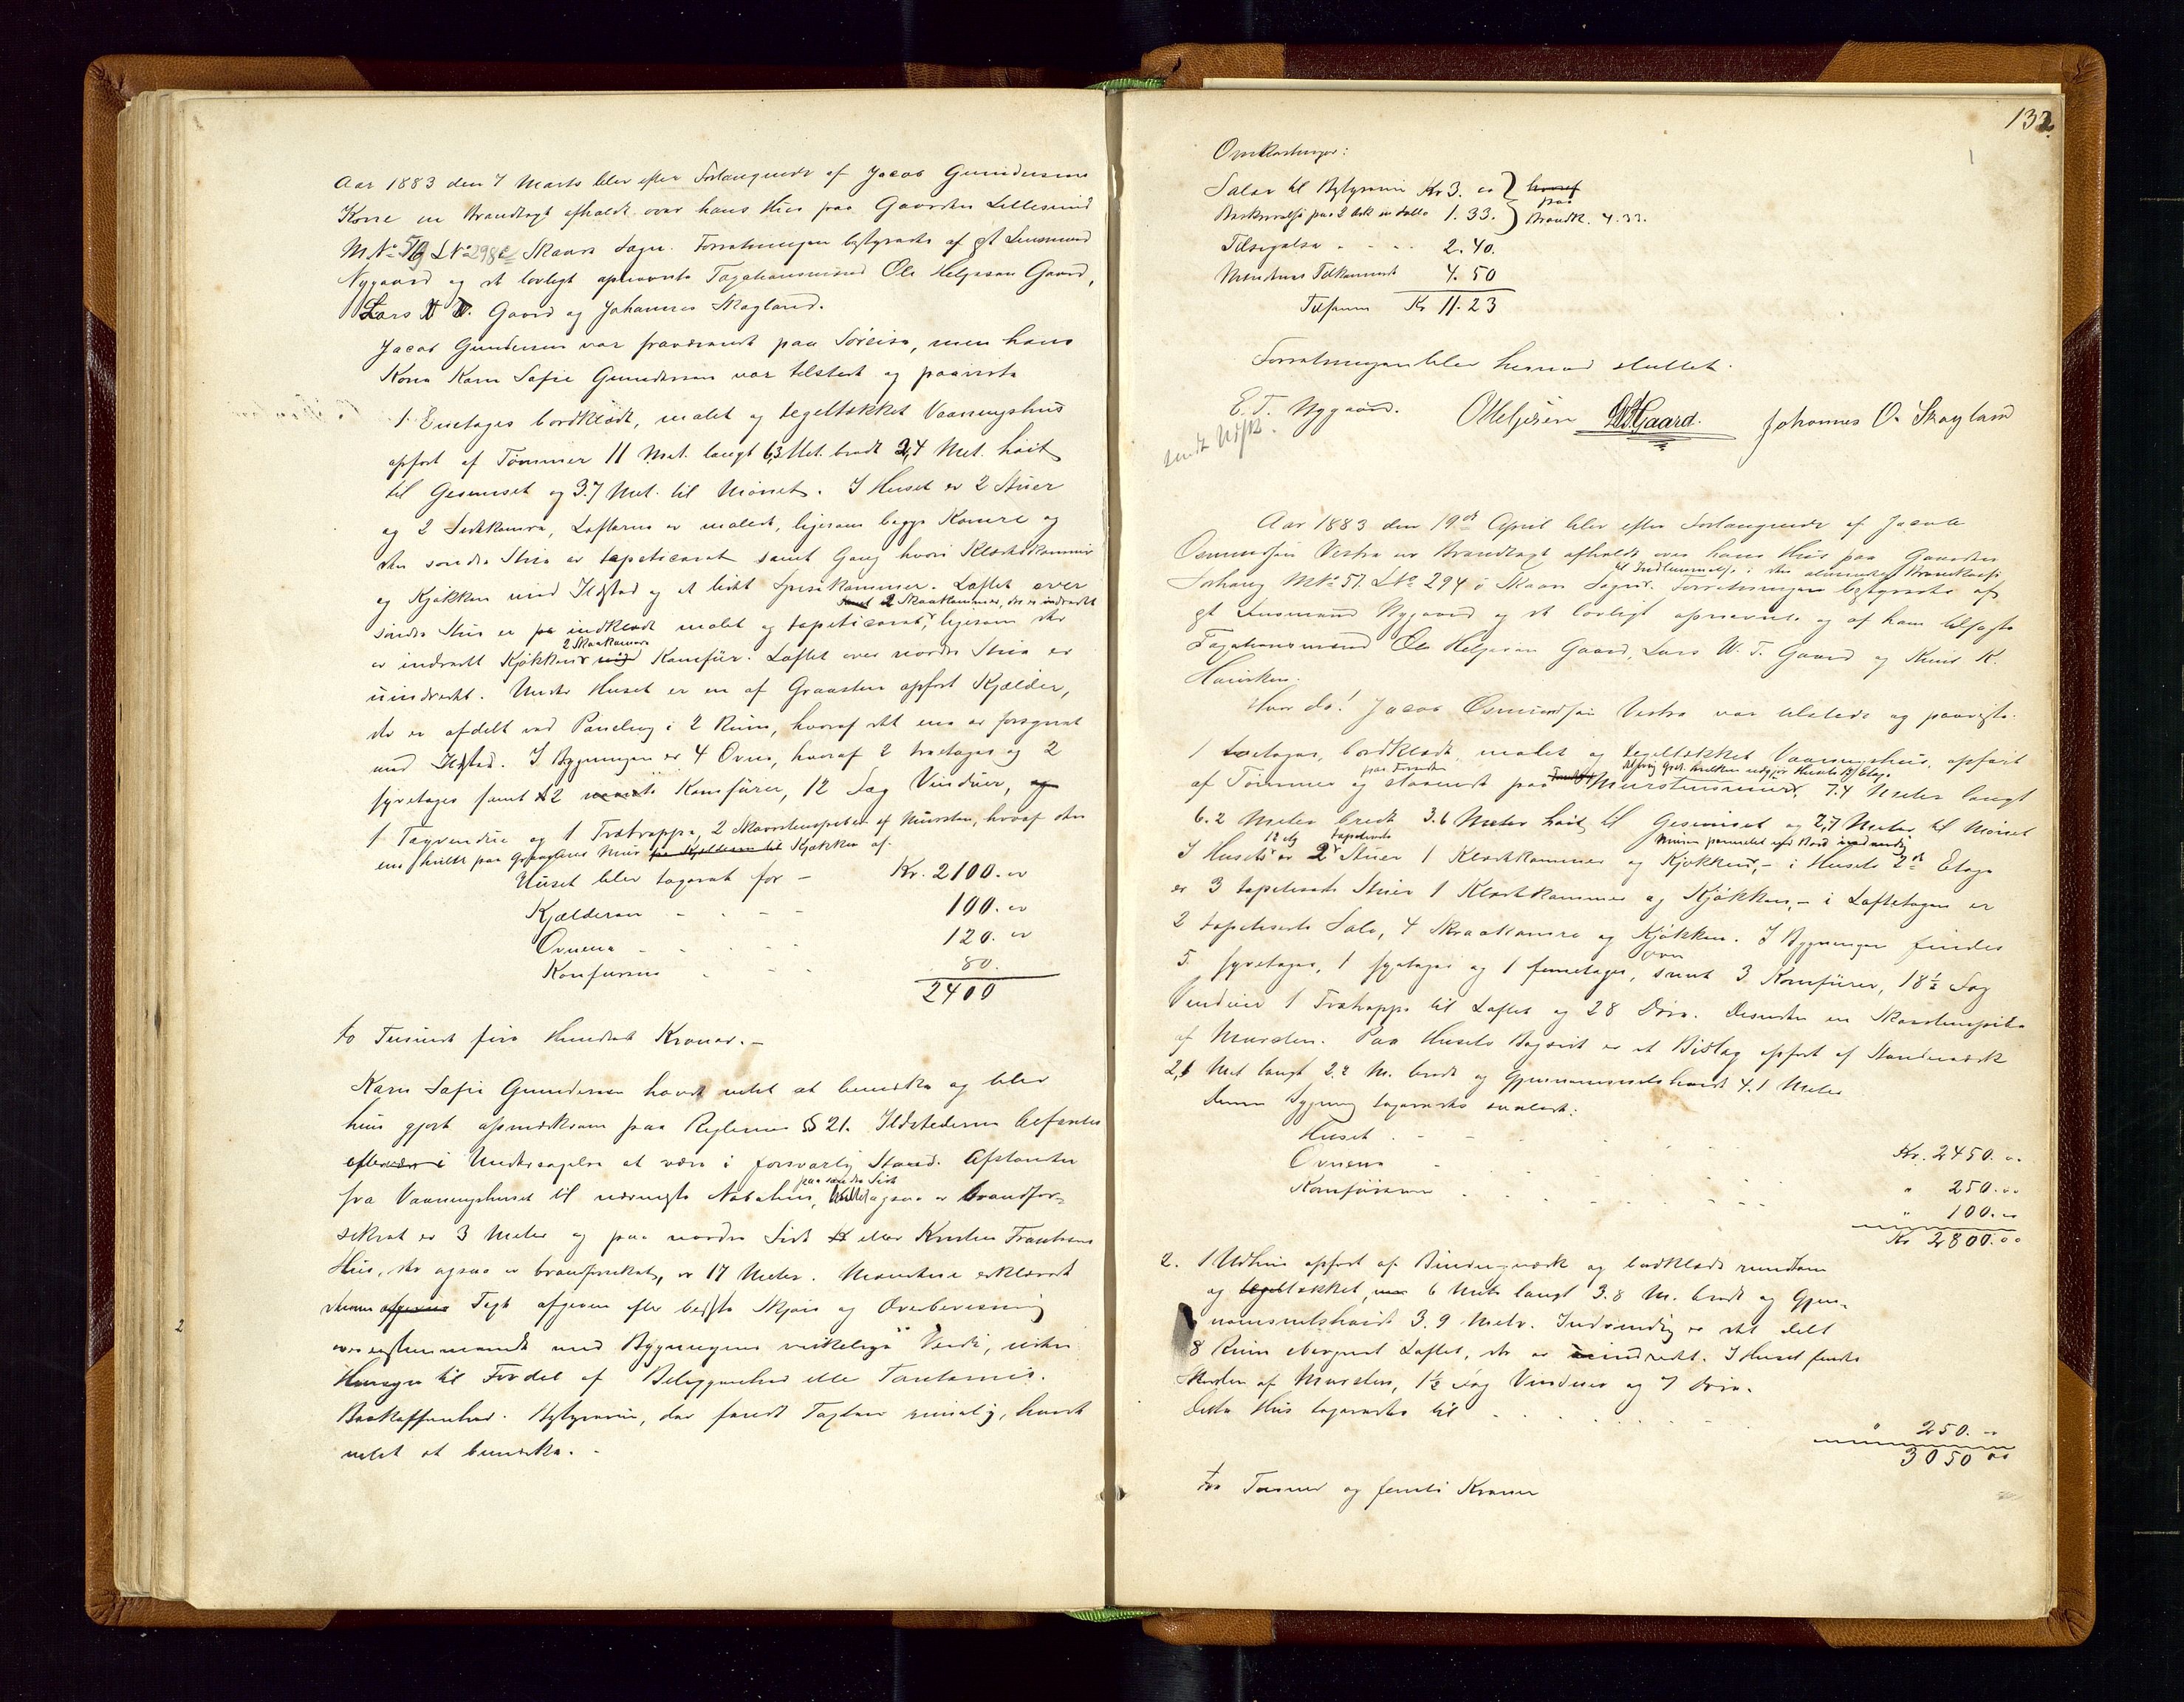 Aar 1883 den 7 Marts blev efter Forlangende af Jacob Gundersen
Korre en Brandtagt afholdt over hans Hus paa Gaarden Lillesund
M. No 5 L No 298 Skaare Sogn. Forretningen bestyredes af gt Lensmand
Nygaard og de lovligt opnævnte Taxationsmænd Ole Helgesen Gaard,
Lars W T. Gaard og Johannes Skogland.
Jacob Gundersen var fraværende paa Søreise, men hans
Kone Karn Sofie Gundersen var tilstede og paaviste
1. Enetages bordklædt, malet og tegeltækket Vaaningshus
opført af Tømmer 11 Met. langt 6,3 Met. bredt 3,4 Met. høit
til Gesimset og 3.7 Met. til Mønet. I Huset er 2 Stuer
og 2 Sovekamre, Lofterne er malede, ligesom begge Kamre og
den søndre Stue er tapeticeret samt Gang hvori Klædeskammer
og Kjøkken med Ildsted og et lidet Spisekammer. Loftet over
samt 2 Skraakammer, der er indredet
søndre Stue er indklædt malet og tapeticeret, ligesom der
2 Skraakamre
er indredt Kjøkken Komfur. Loftet over nordre Stue er
uindredt. Under Huset er en af Graasten opført Kjælder,
der er afdelt ved Paneling i 2 Rum, hvoraf det ene er forsynet
med Ildsted. I Bygningen er 4 Ovne, hvoraf 2 treetages og 2
fyretages samt 2 Komfürer, 12 Fag Vinduer, og
1 Tagvindue og 1 Trætrappe, 2 Skorstenspiber af Mursten, hvoraf den
ene hviler paa Mur Kjøkken af.
Huset blev taxeret for - Kr. 2100. "
Kjælderen - - - 100. "
Ovnene - - - 120. "
Komfurene - - 80.
2400
to Tusinde fire Hundrede Kroner. -
Karn Sofie Gundersen havde intet at bemærke og blev
hun gjort opmærksom paa Reglerne § 21. Ildstederne befantes
efter Undersøgelse at være i forsvarlig Stand. Afstanden
paa søndre Side
fra Vaaningshuset til nærmeste Nabohus, hvilket ogsaa er brandfor-
sikret er 3 Meter og paa nordre Side eller Frantsens
Hus, der ogsaa er brandforsikret, er 17 Meter. Mændene erklærede
denne Taxt afgiven efter bedste Skjøn og Overbevisning
overensstemmende med Bygningens virkelige Værdi, uden
Hensyn til Fordel af Beliggenhed eller Tomtens
Beskaffenhed. Bestyreren, der fandt Taxten rimelig, havde
intet at bemærke. -
2
132.
Omkostninger:
Salær til Bestyreren Kr 3. "
Beskrivelse paa 2 Ark in dublo 1. 33. Brandk. 4.33.
hvoraf
paa
Tilsigelse - - - 2. 40.
Mændenes Tilkommende 4. 50
Tilsammen Kr 11. 23
Forretningen blev hermed sluttet.
E. T. Nygaard. OHelgesen LWTGaard. Johannes O. Skogland
Aar 1883 den 19de April blev efter Forlangende af Jacob
Osmundsen Vestre en Brandtagt afholdt over hans Hus paa Gaarden
til Indlemmelse i den almindelige Brandkasse
Sørhaug MNo 57 LNo 294 i Skaare Sogn. Forretningen bestyredes af
gt Lensmand Nygaard og de lovligt opnævnte og af ham tilsagte
Taxationsmænd Ole Helgesen Gaard, Lars W. T. Gaard og Knud K.
Hauken.
Hvor da! Jacob Osmundsen Vestre var tilstede og paaviste:
1 toetages, bordklædt, malet og tegeltækket Vaaningshus, opført
paa Forsiden
af Tømmer og staaende paa Murstensmur, 7.4 Meter langt
6.2 Meter bredt 3.6 Meter høit til Gesimset og 2,7 Meter til Mønet
I Husets er 2 Stuer 1 Klædekammer og Kjøkken, - i Husets 2den Etage
er 3 tapetserede Stuer 1 Klædekammer og Kjøkken, - i Loftetagen er
2 tapetserede Sale, 4 Skraakamre og Kjøkken. I Bygningen findes
Ovn
5 fyretages, 1 og 1 femetages, samt 3 Komfürer, 18½ Fag
Vinduer 1 Trætrappe til Loftet og 28 Døre. Desuden en Skorstenspibe
af Mursten. Paa Husets Bagside er et Bislag opført af Stenderværk
2,6 Met langt 2.2 M. bredt og Gjennemsnitshøide 4.1 Meter
Denne Bygning taxeredes saaledes:
Huset - - Kr. 2450. "
Ovnene - " 250. "
Komfürerne - " 100. "
Kr 2800. "
2. 1 Udhus opført af Bindingsværk og bordklædt rundtom
og tegltækket, 6 Meter langt 3.8 M. bredt og Gjen-
nemsnitshøide 3.9 Meter. Indvendig er det delt
8 Rum iberegnet Loftet, der er uindredt. I Huset findes
Skorsten af Mursten, 1½ Fag Vinduer og 7 Døre.
Dette Hus taxeredes til " 250. "
3050 "
tre Tusind og femti Kroner